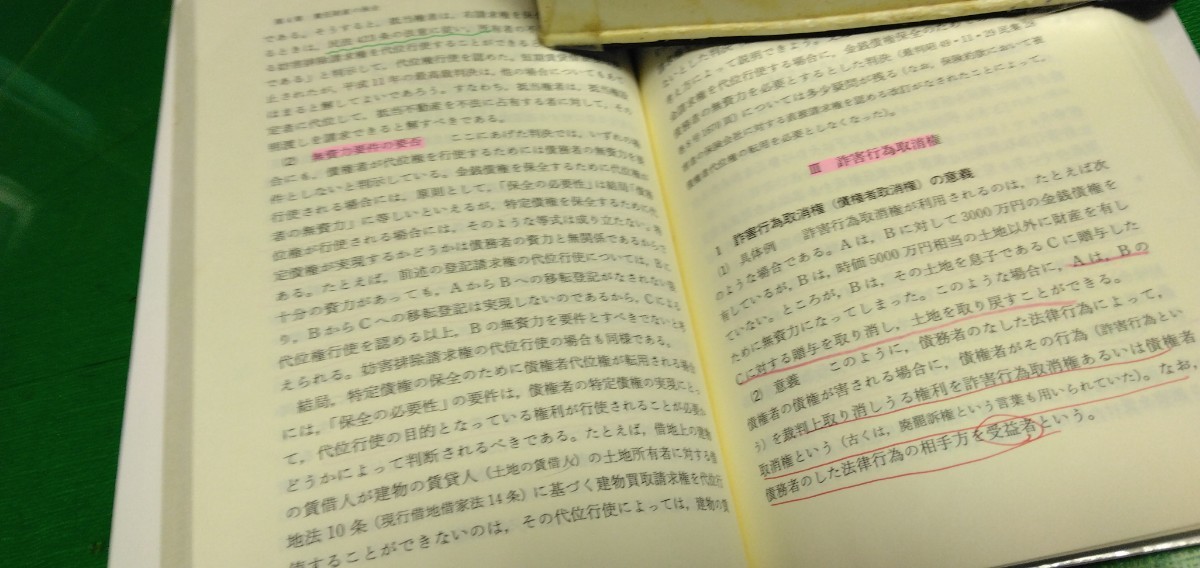 である。そうすると，抵当権者は，右請求権を保
るときは，民法423条の法意に従い，所有者の
る妨害排除請求権を代位行使することができる
である」と判示して，代位行使を認めた。短期賃貸
止されたが，平成11年の最高裁判決は，他の場合についてもあて
はまると解してよいであろう。すなわち，抵当権者は，抵当権設
定者に代位して，抵当不動産を不法に占有する者に対して，その
明渡しを請求できると解すべきである。
(2) 無資力要件の要否 ここにあげた判決では，いずれの場
合にも，債権者が代位権を行使するためには債務者の無資力を要
件としないと判示している。金銭債権を保全するために代位権の
行使される場合には，原則として，「保全の必要性」は結局「債務
者の無資力」に等しいといえるが，特定債権を保全するために代
位権が行使される場合には，そのような等式は成り立たない。特
定債権が実現するかどうかは債務者の資力と無関係であるからで
ある。たとえば，前述の登記請求権の代位行使については，Bに
十分の資力があっても，AからBへの移転登記がなされない限
り，BからCへの移転登記は実現しないのであるから，Cによる
代位権行使を認める以上，Bの無資力を要件とすべきでないと考
えられる。妨害排除請求権の代位行使の場合も同様である。
結局，特定債権の保全のために債権者代位権が転用される場合
には，「保全の必要性」の要件は，債権者の特定債権の実現にとっ
て，代位行使の目的となっている権利が行使されることが必要か
どうかによって判断されるべきである。たとえば，借地上の建物
の賃借人が建物の賃貸人（土地の賃借人）の土地所有者に対する借
地法10条（現行借地借家法14条）に基づく建物買取請求権を代位行
使することができないのは，その代位行使によっては，建物の賃
ないとした判決
考え方によって説明できよう。
金請求権を代位行使する場合に，金銭債権保全のため
債務者の無資力を必要とするとした判決（最判昭49・11・29民集28
巻8号1670頁）については多少疑問が残る（なお，保険約款において被
害者の保険会社に対する直接請求権を認める改訂がなされたことによって，
債権者代位権の転用を必要としなくなった）。
Ⅲ 詐害行為取消権
1 詐害行為取消権（債権者取消権）の意義
(1) 具体例 詐害行為取消権が利用されるのは，たとえば次
のような場合である。Aは，Bに対して3000万円の金銭債権を
有しているが，Bは，時価5000万円相当の土地以外に財産を有し
ていない。ところが，Bは，その土地を息子であるCに贈与した
ために無資力になってしまった。このような場合に，Aは，Bの
Cに対する贈与を取り消し，土地を取り戻すことができる。
(2) 意義 このように，債務者のなした法律行為によって，
債権者の債権が害される場合に，債権者がその行為（詐害行為とい
う）を裁判上取り消しうる権利を詐害行為取消権あるいは債権者
取消権という（古くは，廃罷訴権という言葉も用いられていた）。なお，
債務者のした法律行為の相手方を受益者という。